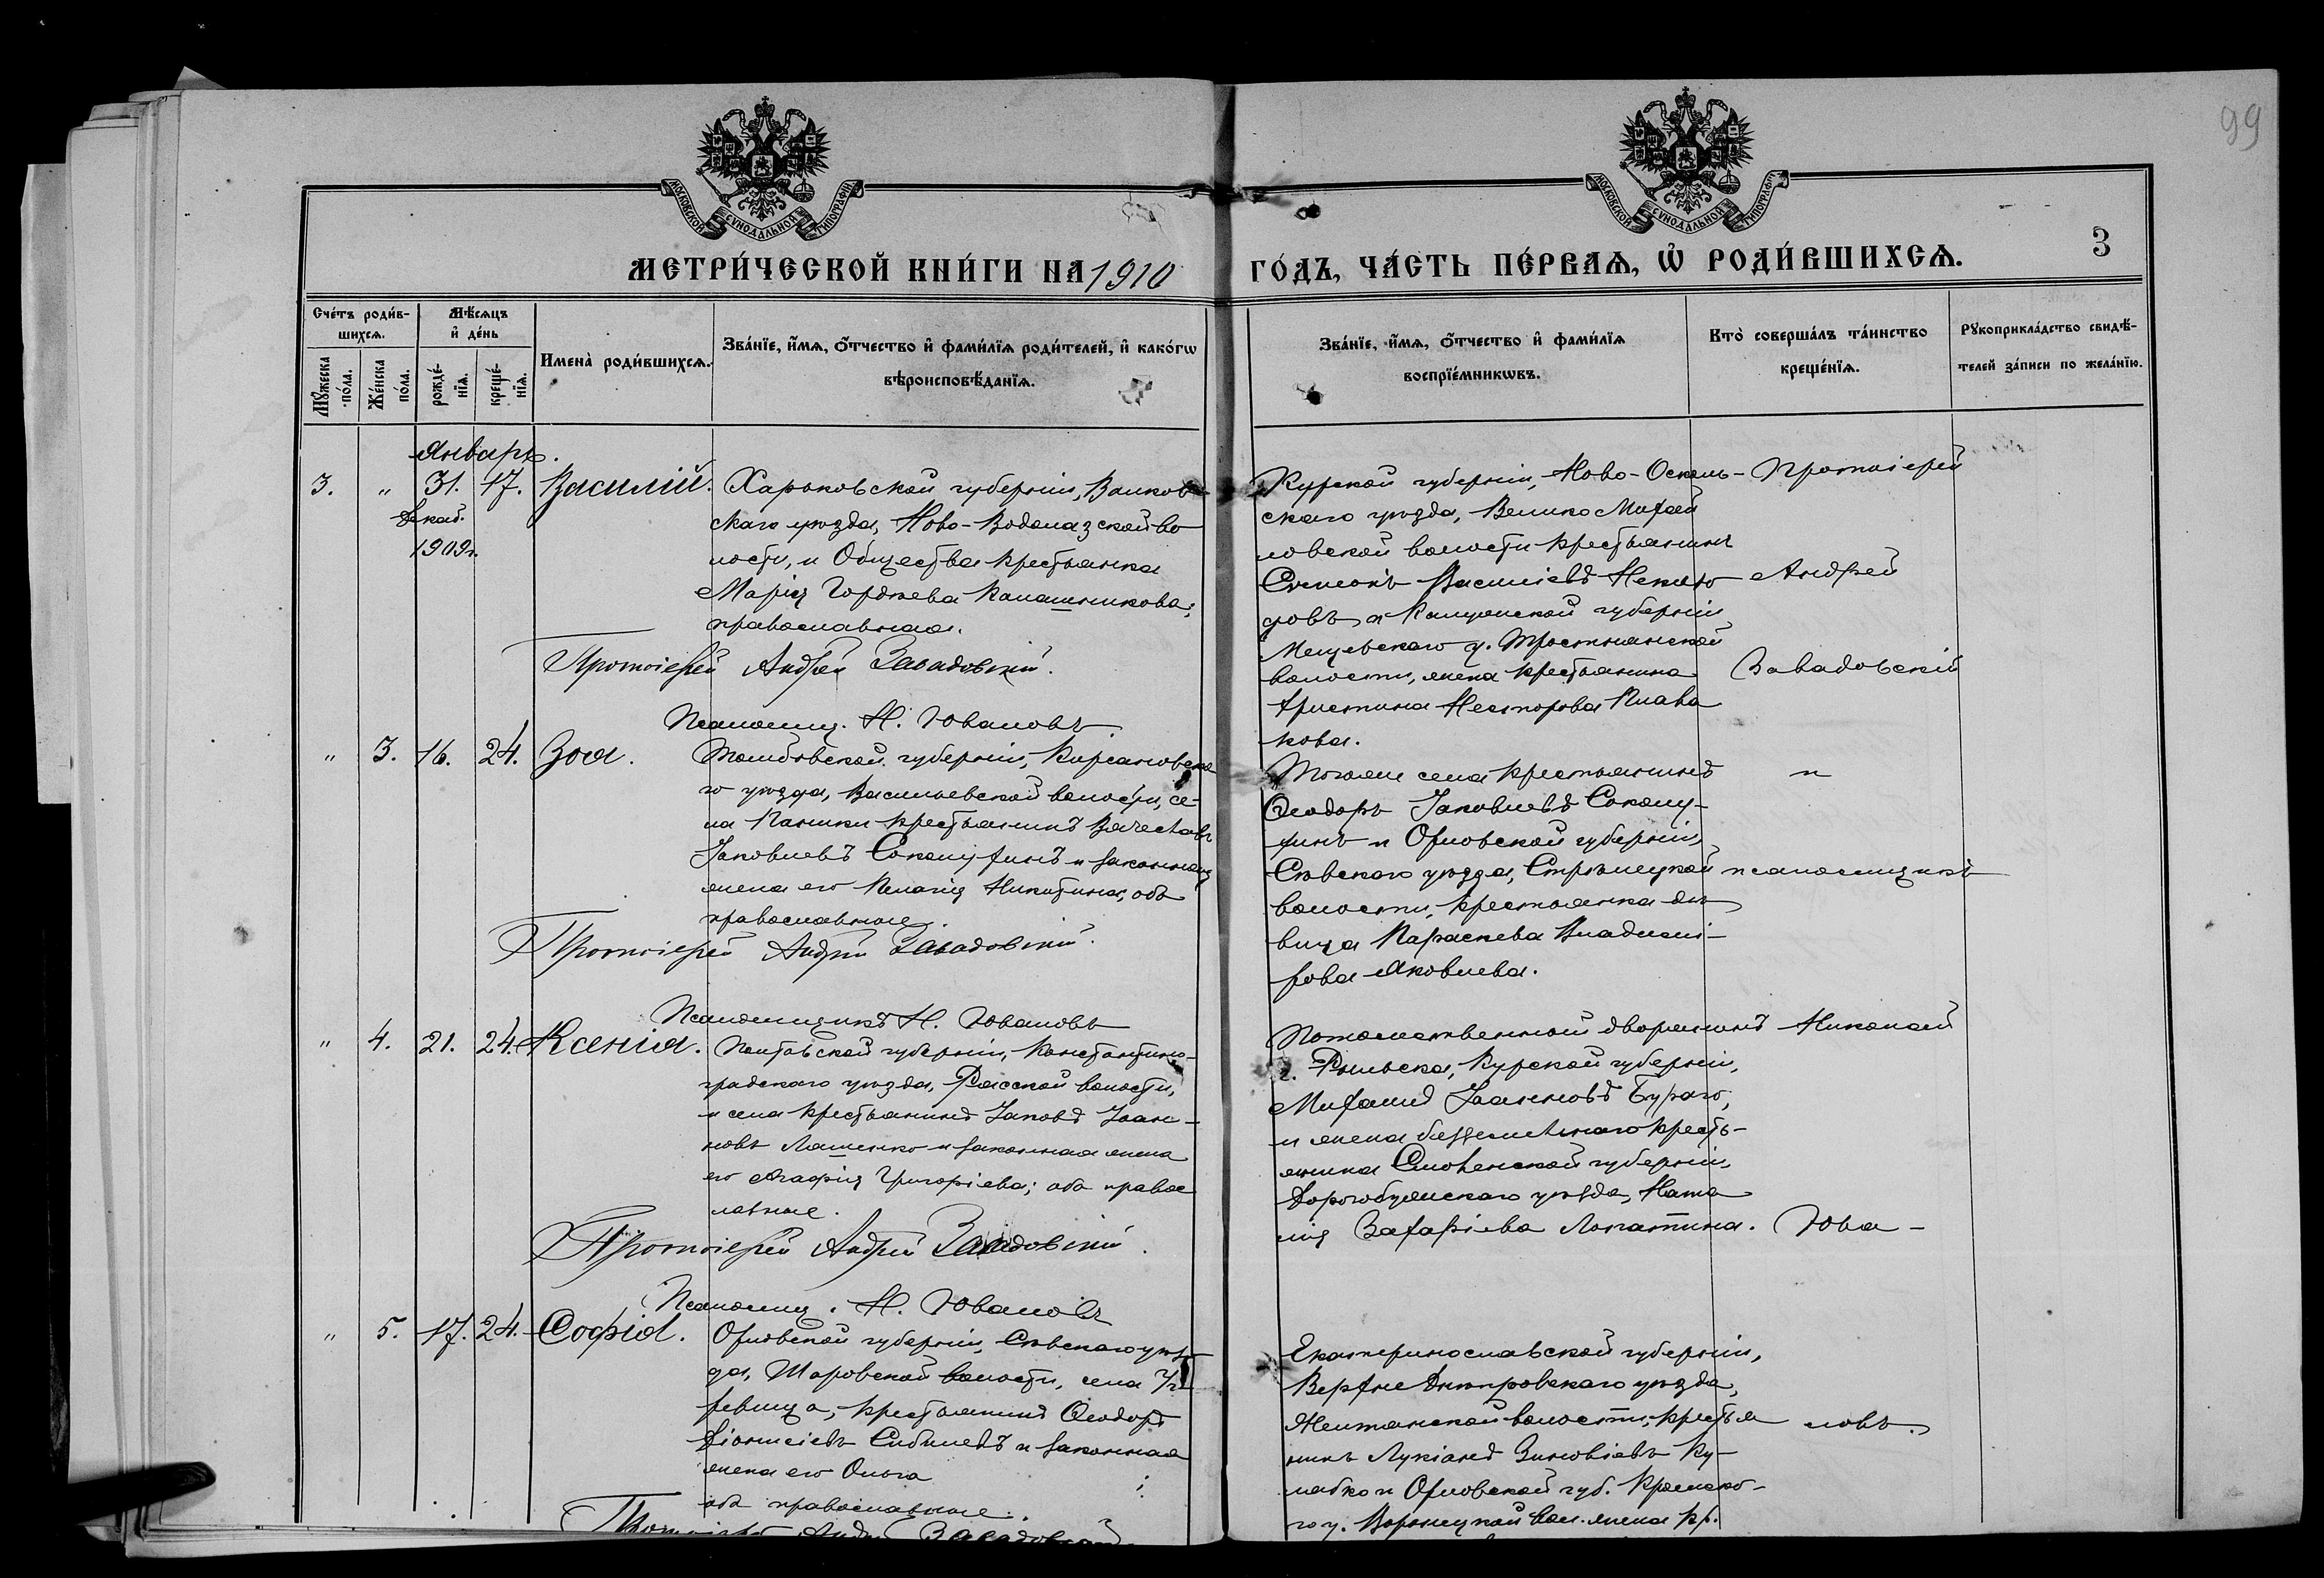 99
МОСКОВСКОЙ СѴНОДАЛЬНОЙ ТИПОГРАФІИ
МОСКОВСКОЙ СѴНОДАЛЬНОЙ ТИПОГРАФІИ
МЕТРИ́ЧЕСКОЙ КНИ́ГИ НА 1910
ГО́ДЪ, ЧА́СТЬ ПЕ́РВАѦ, Ѡ҆ РОДИ́ВШИХСѦ.
3
Сче́тъ роди́в-
шихсѧ.
Мꙋ́жеска
по́ла.
Же́нска
по́ла.
Мѣ́сѧцъ
и҆ де́нь
рожде́-
нїѧ.
креще́-
нїѧ.
Имена̀ роди́вшихсѧ.
Зва́нїе, и҆́мѧ, ѻ҆́тчество и҆ фами́лїѧ роди́телей, и҆ како́гѡ
вѣроисповѣ́данїѧ.
Зва́нїе, и҆́мѧ, ѻ҆́тчество и҆ фами́лїѧ
воспрїе́мникѡвъ.
Кто̀ соверша́лъ та́инство
креще́нїѧ.
Рꙋкоприкла́дство свидѣ́-
телей за́писи по жела́нїю.
Январь.
3. " 31. 17. Василій.
Декаб.
1909г.
Харьковской губерніи, Валков-
скаго уѣзда, Ново-Водолазской во
лости, и Общества крестьянка
Марія Гордѣева Калашникова;
православная.
Протоіерей Андрей Завадовскій.
Псаломщ. Н. Ювановъ
Курской губерніи, Ново-Осколь-
скаго уѣзда, Велико Михай
ловской волости крестьянинъ
Сѵмеонъ Василіевъ
и Калужской губерніи
у.
волости, жена крестьянина
Христина Несторова
кова.
Протоіерей
Андрей
Завадовскій
" 3. 16. 24. Зоя.
Тамбовской губерніи, Кирсановска
го уѣзда, Васильевской волости, се-
ла крестьянинъ Вячеславъ
Іаковлевъ и законная
жена его Пелагія Никитина, оба
православные.
Протоіерей Андрей Завадовскій.
Псаломщикъ Н. Ювановъ
села крестьянинъ
Ѳеодоръ Іаковлевъ
и Орловской губерніи,
Сѣвскаго уѣзда, Стрѣлецкой
волости, крестьянка дѣ
вица Параскева Владимі-
рова Яковлева.
и
псаломщикъ
" 4. 21. 24. Ксенія.
Полтавской губерніи, Константино-
градскаго уѣзда, волости,
и села крестьянинъ Іаковъ Іоан-
новъ Ляшенко и законная жена
его Агафія Григоріева; оба право
славные.
Протоіерей Андрей Завадовскій.
Псаломщ. Н. Ювановъ
Потомственный дворянинъ
г. Рыльска, Курской губерніи,
Михаилъ Іоанновъ Бураго,
и жена безземельнаго кресть-
янина Смоленской губерніи,
Дорогобужскаго уѣзда, Ната
лія Захаріева Лопатина.
Николай
Юва-
" 5. 17. 24. Софія.
Орловской губерніи, Сѣвскаго уѣз
да, Шаровской волости, села
крестьянинъ Ѳеодоръ
Діонисіевъ и законная
жена его Ольга ;
оба православные.
Протоіерей Андрей Завадовскій
Екатеринославской губерніи,
Верхне Днѣпровскаго уѣзда,
Желтянской волости, крестья
нинъ Лукіанъ Зиновіевъ
и Орловской губ. Кромско-
го у. вол. жена кр.
новъ.